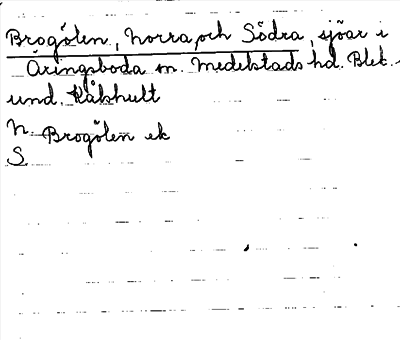 Brogölen, Norra, och Södra, sjöar i
Äringsboda sn. Medelstads hd. Blek.
und. Kåkhult
N. Brogölen ek
S.